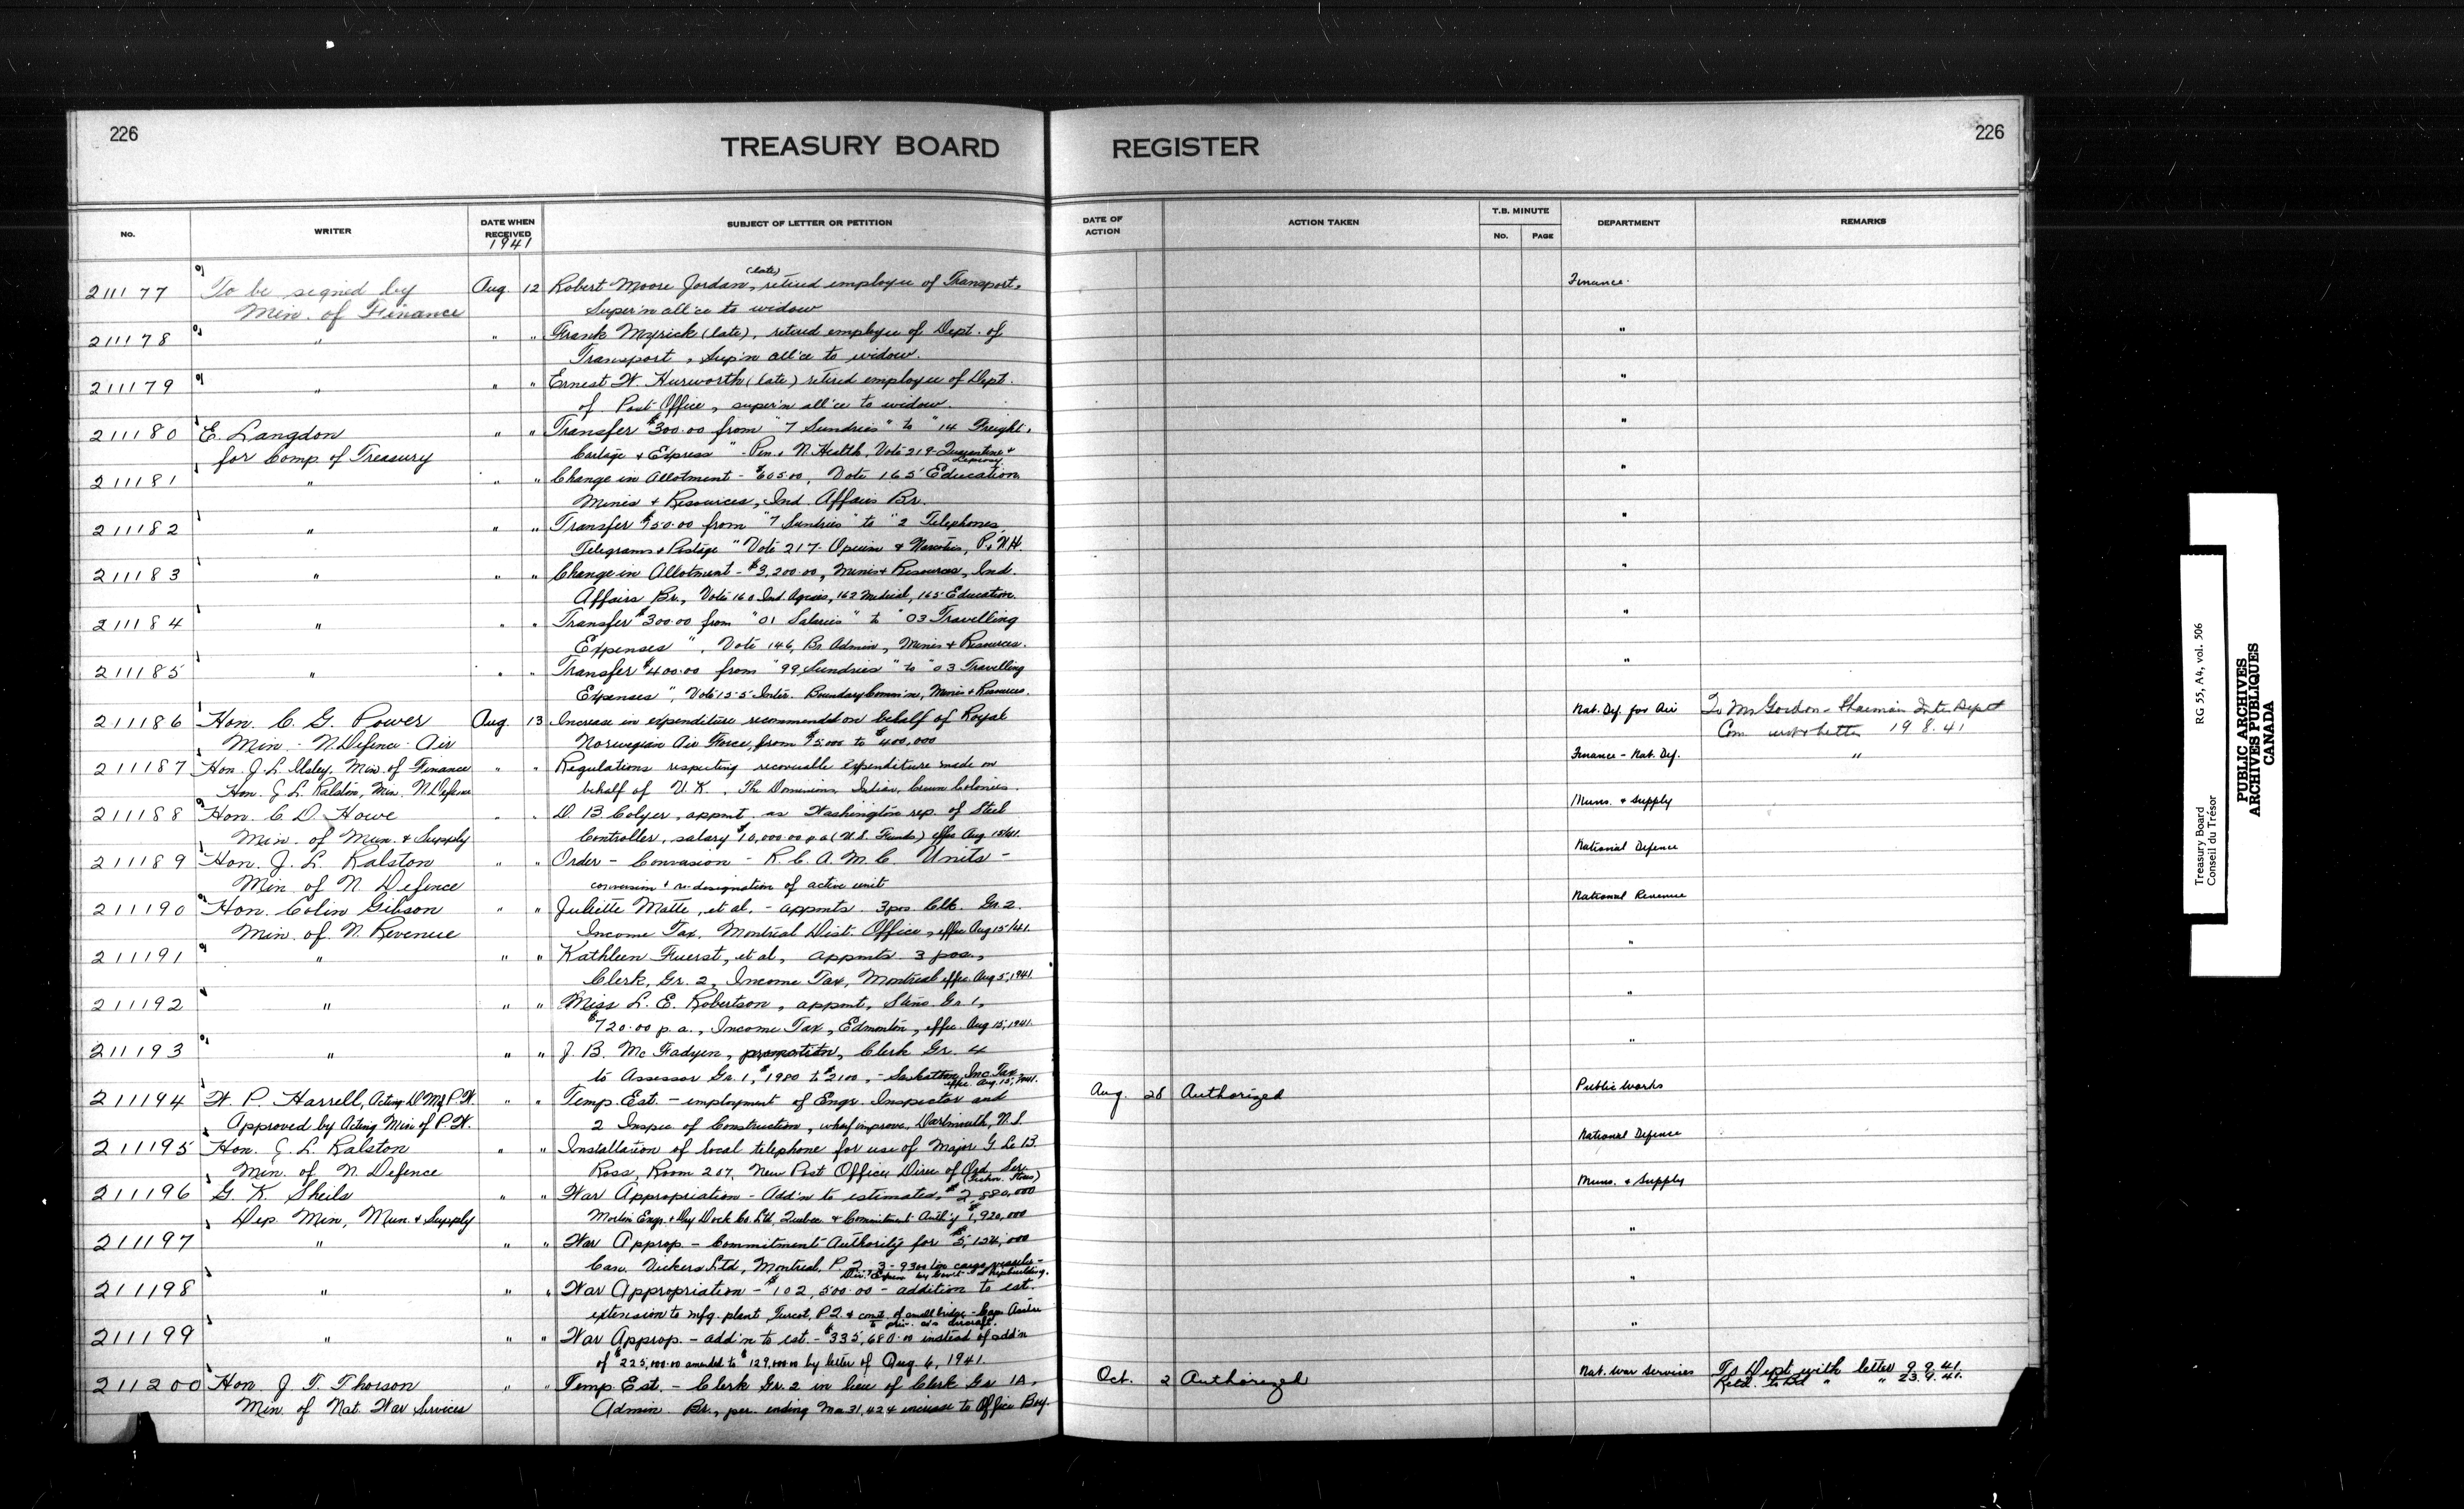 226
TREASURY BOARD REGISTER
226
No.
WRITER
DATE WHEN RECEIVED
1941
SUBJECT OF LETTER OR PETITION
DATE OF ACTION
ACTION TAKEN
T.B. MINUTE
No.
PAGE
DEPARTMENT
REMARKS
211177 To be signed by Aug. 12 Robert Moore Jordan, (late) retired employee of Transport, Finance.
Min. of Finance Super'n all'ce to widow
211178 " " " Frank Myrick (late), retired employee of Dept. of "
Transport, Sup'n all'ce to widow.
211179 " " " Ernest W. Hurworth (late) retired employee of Dept. "
of Post Office, super'n all'ce to widow.
211180 E. Langdon " " Transfer $300.00 from "7 Sundries" to "14 Freight, "
for Comp. of Treasury Cartage & Express" - Pen. & N. Health, Vote 219 - Quarantine & Leprosy
211181 " " " Change in Allotment - $605.00, Vote 165 Education "
Mines & Resources, Ind. Affairs Br.
211182 " " " Transfer $50.00 from "7 Sundries" to "2 Telephones, "
Telegrams & Postage" Vote 217 - Opium & Narcotics, P. & N.H.
211183 " " " Change in Allotment - $3,200.00, Mines & Resources, Ind. "
Affairs Br., Vote 160 Ind. Agcies, 162 Medical, 165 Education.
211184 " " " Transfer $300.00 from "01 Salaries" to "03 Travelling "
Expenses", Vote 146, Br. Admin, Mines & Resources.
211185 " " " Transfer $400.00 from "99 Sundries" to "03 Travelling "
Expenses", Vote 155 Inter. Boundary Comm'ne, Mines & Resources.
211186 Hon. C. G. Power Aug. 13 Increase in expenditure recommended on behalf of Royal Nat. Def. for Air To Mr Gordon - Chairman Int. Dept
Min. N. Defence Air Norwegian Air Force, from $75,000 to $400,000 Com with letter 19.8.41
211187 Hon. J. L. Ilsley, Min. of Finance " " Regulations respecting recoverable expenditure made on Finance - Nat. Def. "
Hon. J. L. Ralston, Min. N. Defence behalf of U.K., The Dominions, India, Crown Colonies.
211188 Hon. C. D. Howe " " D. B. Colyer, appmt. as Washington rep. of Steel Muns. & Supply
Min. of Mun. & Supply Controller, salary $10,000.00 p.a. (U.S. Funds) effec Aug 15/41.
211189 Hon. J. L. Ralston " " Order - Conversion - R.C.A.M.C. Units - National Defence
Min. of N. Defence conversion & re-designation of active unit
211190 Hon. Colin Gibson " " Juliette Matte, et al. - appmts. 3 pos Clk. Gr. 2. National Revenue
Min. of N. Revenue Income Tax, Montreal Dist. Office, effec Aug 15/41.
211191 " " " Kathleen Fuerst, et al, appmts. 3 pos., "
Clerk, Gr. 2, Income Tax, Montreal effec. Aug 5, 1941.
211192 " " " Miss L. E. Robertson, appmt, Steno. Gr 1, "
$720.00 p.a., Income Tax, Edmonton, effec. Aug 15, 1941.
211193 " " " J. B. McFadyen, promotion, Clerk Gr. 4 "
to Assessor Gr. 1, $1980 to $2100, - Saskatoon, Inc. Tax effec. Aug. 15, 1941.
211194 W. P. Harrell, Acting D. M. of P. W. " " Temp. Est. - employment of Engr. Inspector and Aug. 28 Authorized Public Works
Approved by Acting Min of P.W. 2 Inspec of Construction, wharf improve, Dartmouth, N.S.
211195 Hon. J. L. Ralston " " Installation of local telephone for use of Major G. Le B. National Defence
Min. of N. Defence Ross, Room 207, New Post Office, Direc of Ord. Ser.
211196 G. K. Sheils " " War Appropriation - Add'n to estimates, $2,880,000 Muns. & Supply
Dep. Min, Mun. & Supply Engr. & Dry Dock Co. Ltd, Quebec & Commitment Auth'y $1,920,000
211197 " " " War Approp. - Commitment Authority for $5,124,000 "
Can. Vickers Ltd, Montreal, P.Q. 3 - 9300 ton cargo vessels - Shipbuilding.
211198 " " " War Appropriation - $102,500.00 - addition to est. "
extension to mfg. plant Turcot, P.Q. & const. of small bridge - Can.
211199 " " " War Approp. - add'n to est. - $335,680.00 instead of add'n "
of $225,000.00 amended to $129,000.00 by letter of Aug. 6, 1941.
211200 Hon. J. T. Thorson " " Temp. Est. - Clerk Gr. 2 in lieu of Clerk Gr 1A, Oct. 2 Authorized Nat. War Services To Dept with letter 9.9.41.
Min. of Nat. War Services Admin. Br., per. ending Mar 31, 42 & increase to Office Boy. Retd. to Bd " " 23.9.41.
Treasury Board
Conseil du Trésor
RG 55, A4, vol. 506
PUBLIC ARCHIVES
ARCHIVES PUBLIQUES
CANADA